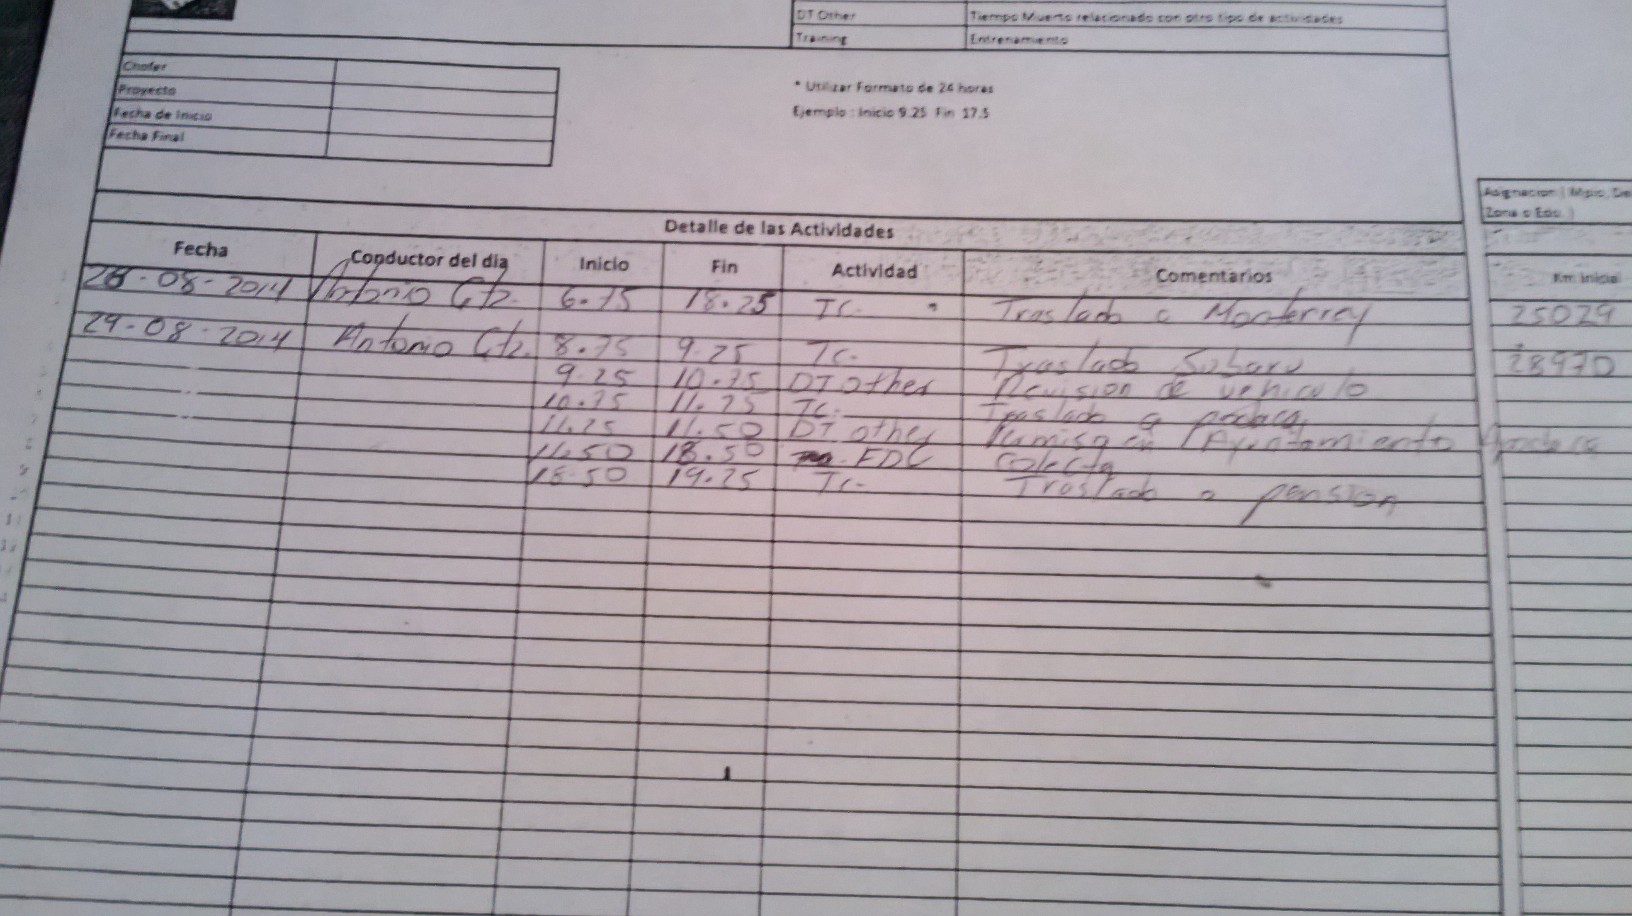 DT Other Tiempo Muerto relacionado con otro tipo de actividades
Training Entrenamiento
Chofer
Proyecto
Fecha de Inicio
Fecha Final
* Utilizar Formato de 24 horas
Ejemplo : Inicio 9.25 Fin 17.5
Asignacion ( Mpio, De
Zona o Edo. )
Detalle de las Actividades
Fecha Conductor del dia Inicio Fin Actividad Comentarios Km Inicial
28-08-2014 Antonio Gtz. 6.75 18.25 TC. Traslado a Monterrey 25029
29-08-2014 Antonio Gtz. 8.75 9.25 TC. Traslado Subaru 28970
9.25 10.75 DT other Revision de vehiculo
10.75 11.25 TC. Traslado a
11.25 11.50 DT other Ayuntamiento
11.50 18.50 FDC colecta
18.50 19.25 TC. Traslado a pension